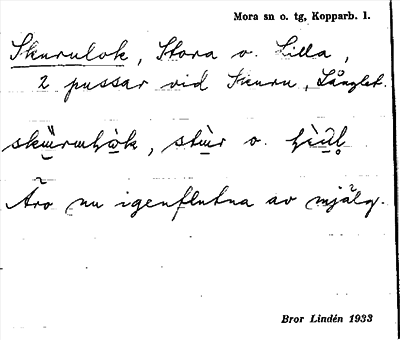 Mora sn o. tg, Kopparb. l.
Skurulok, Stora o. Lilla,
2 pussar vid Skuru, Långlet.
stùr o.
Äro nu igenflutna av mjälg.
Bror Lindén 1933